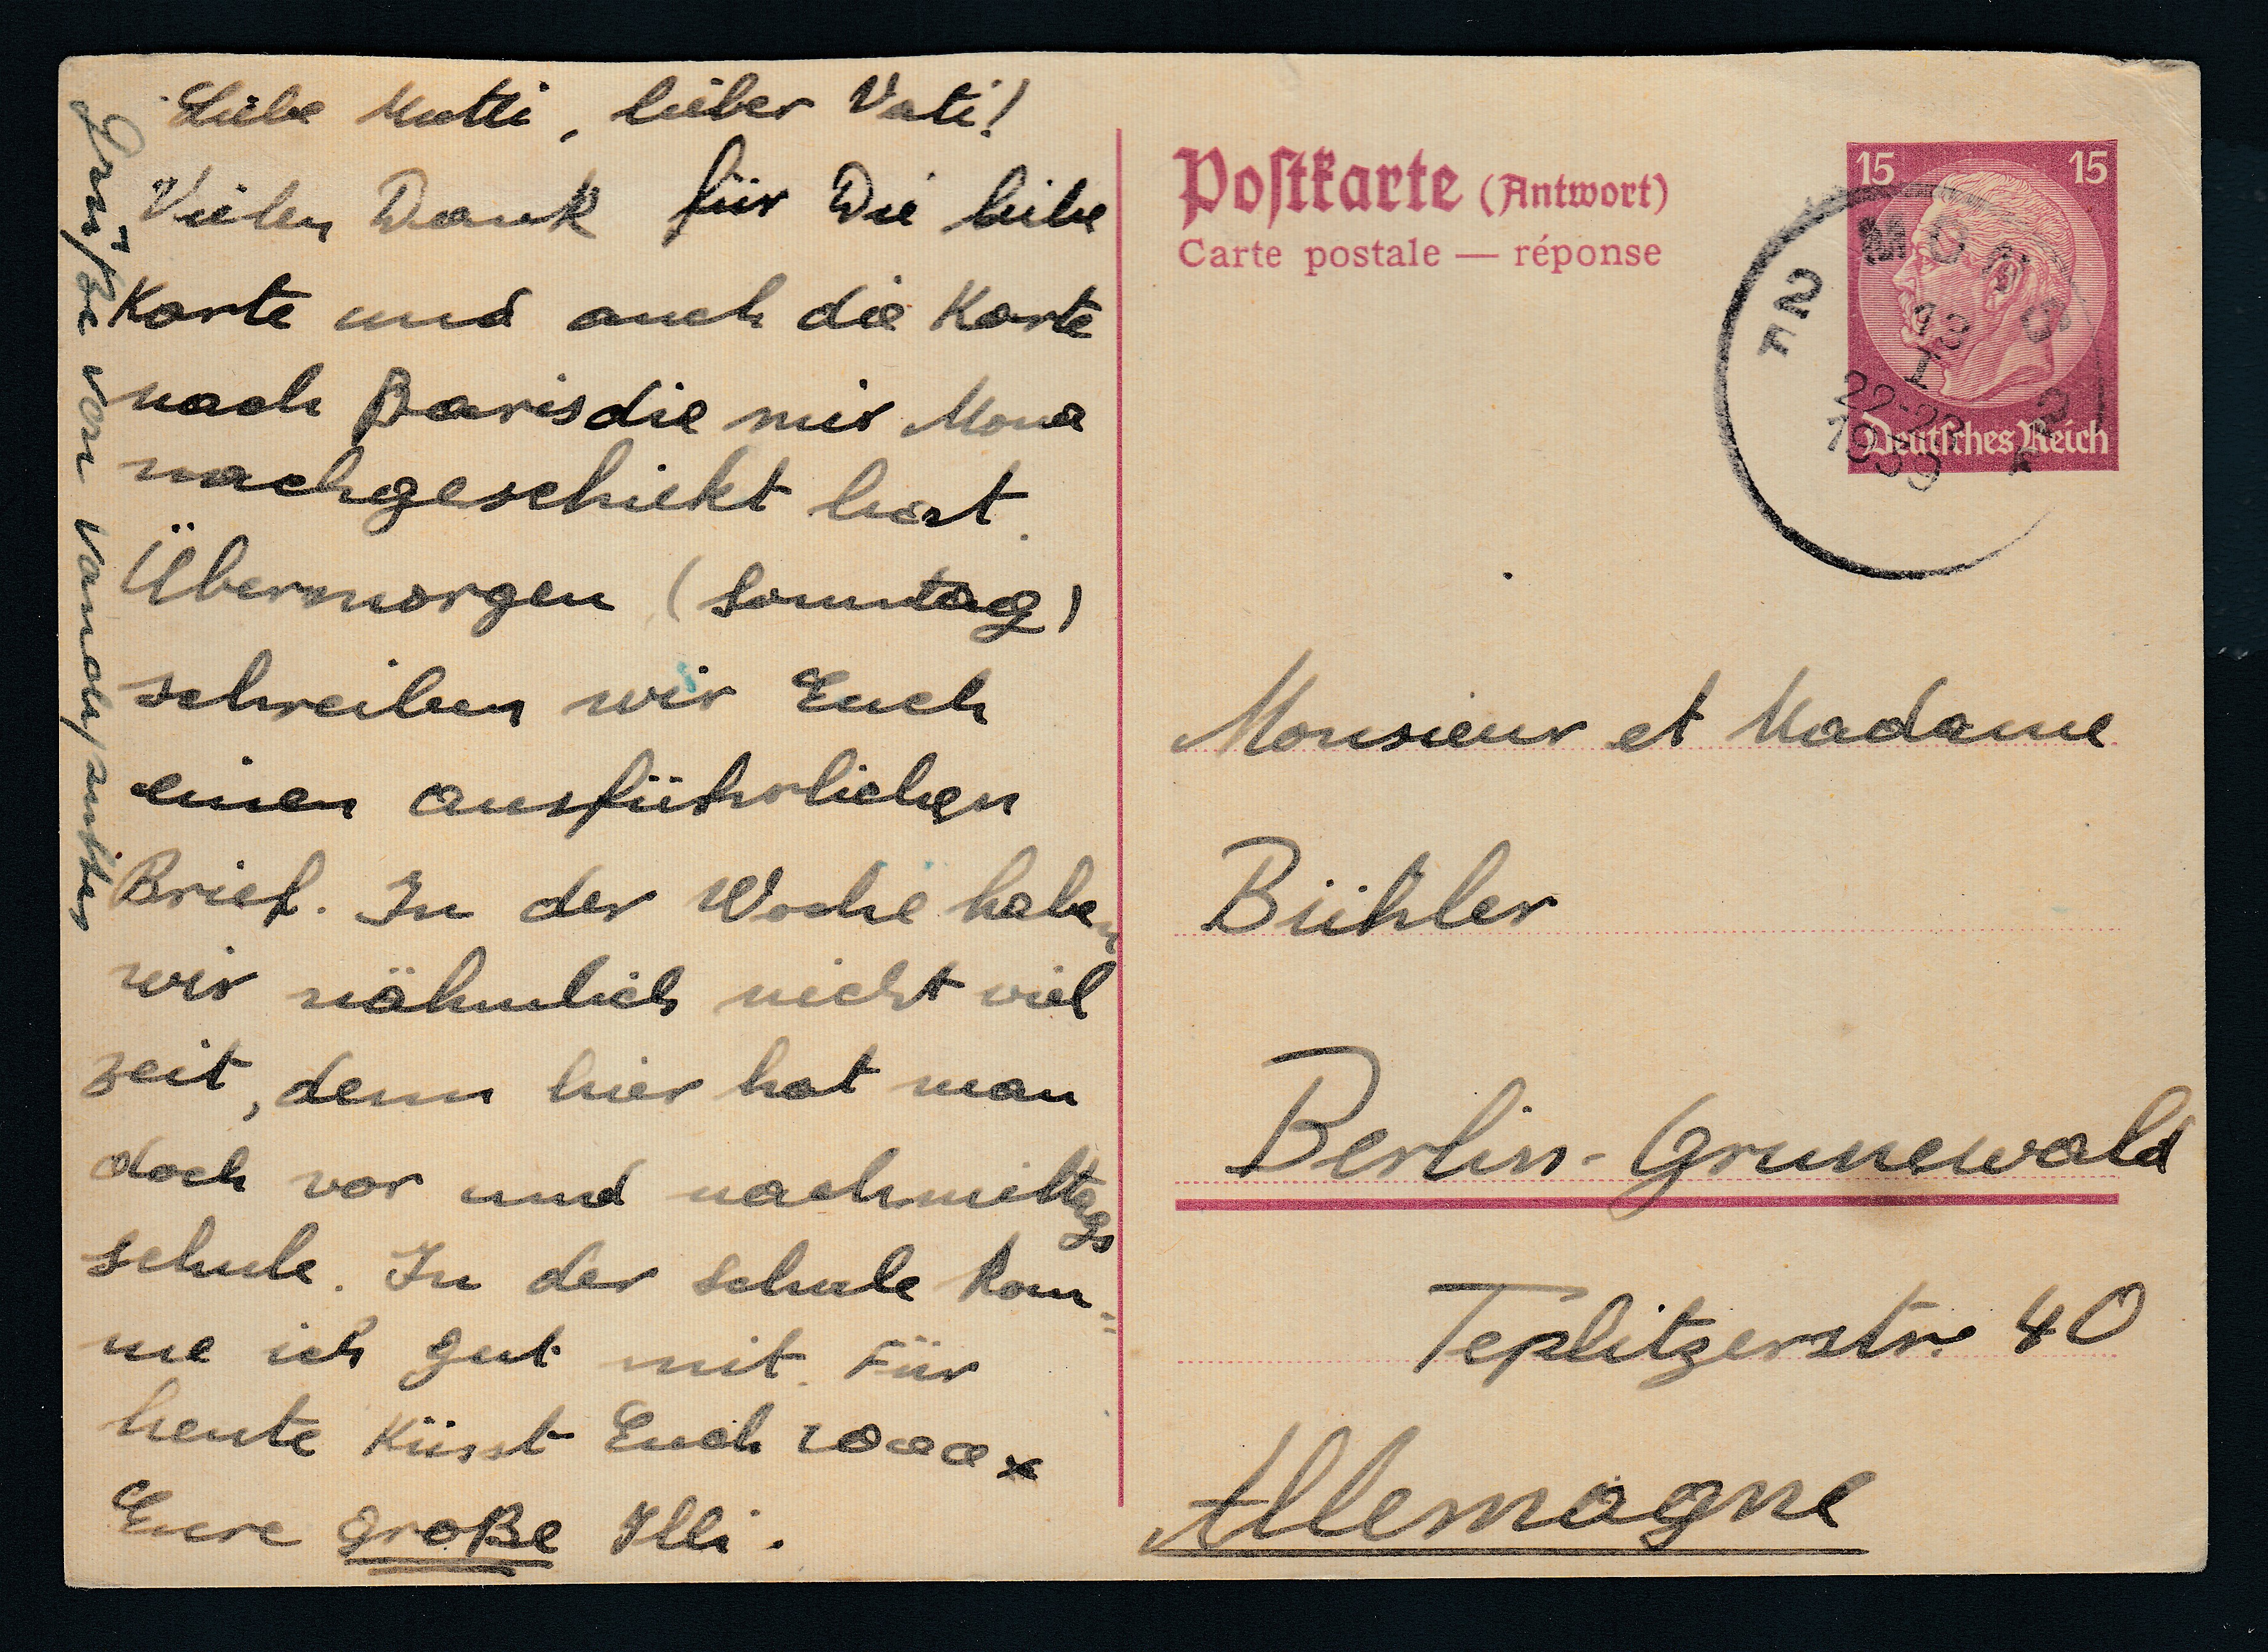 Liebe Mutti, lieber Vati!
Vielen Dank für Die liebe
Karte und auch die Karte
nach Paris die mir Mona
nachgeschickt hat.
Übermorgen (Sonntag)
schreiben wir Euch
einen ausführlichen
Brief. In der Woche haben
wir nähmlich nicht viel
zeit, denn hier hat man
doch vor und nachmittags
schule. In der Schule kom=
me ich gut mit. Für
heute Küsst Euch 10000 x
Eure große Illi.
Grüße von
Postkarte (Antwort)
Carte postale — réponse
15 15
Deutsches Reich
MONS
2 2
F
13
I
22-23
1939
Monsieur et Madame
Bühler
Berlin-Grunewald
Teplitzerstr. 40
Allemagne